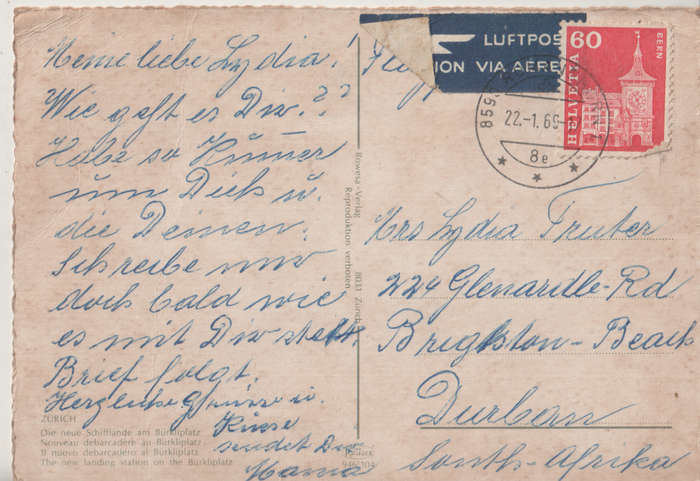 Meine liebe Lydia!
Wie geht es Dir??
Habe so Kummer
um Dich u.
die Deinen.
Schreibe mir
doch bald wie
es mit Dir steht.
Brief folgt.
Herzliche Grüsse u.
Küsse
sendet Dir
Mama
ZÜRICH
Die neue Schifflände am Bürkliplatz
Nouveau débarcadère au Bürkliplatz
Il nuovo debarcadero al Bürkliplatz
The new landing station on the Bürkliplatz
Rowesa-Verlag 8031 Zürich
Reproduktion verboten
LUFTPOS
ION VIA AÉRE
60
BERN
HELVETIA
859
22.-1.69
8e
Mrs Lydia Truter
224 Glenardle-Rd
Brighton-Beach
Durban
South-Afrika